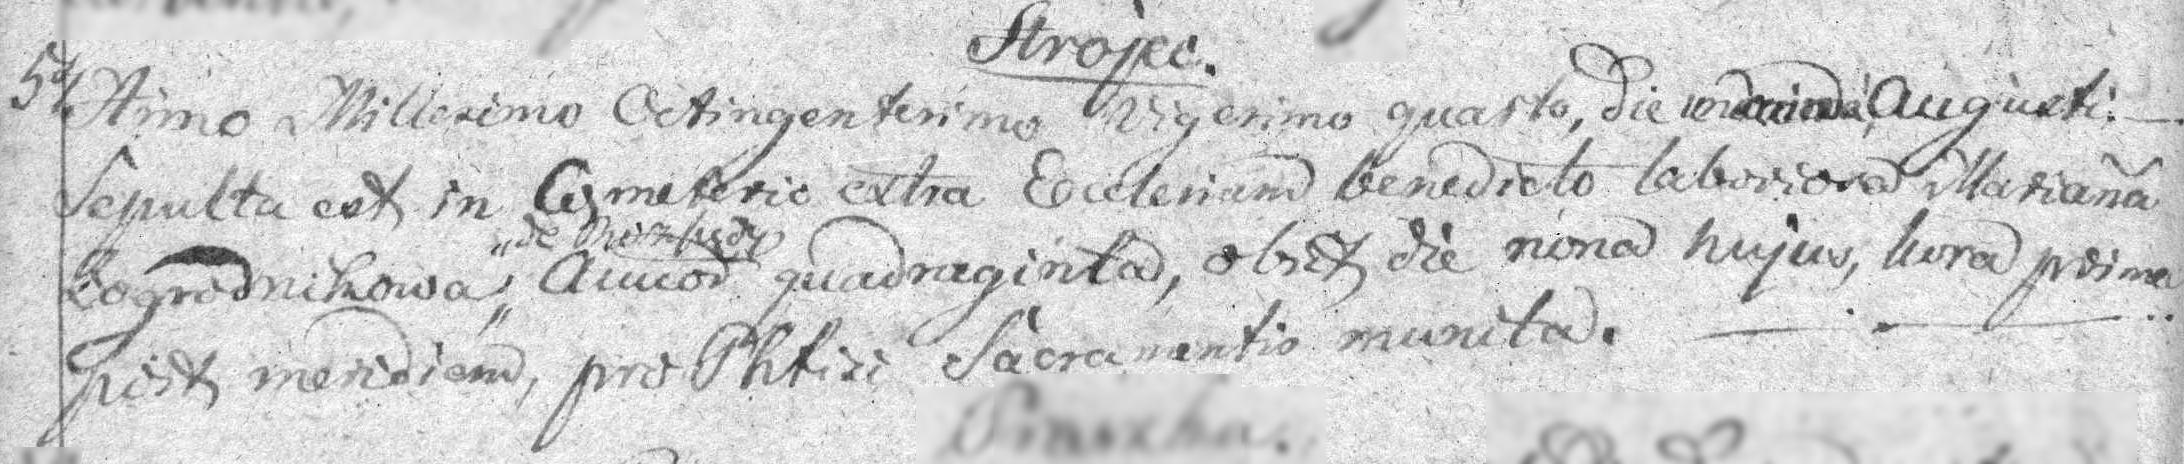 Strojec.
54 Anno Millesimo Octingentesimo Vigesimo quarto, die undecima Augusti.
Sepulta est in Cemeterio extra Ecclesiam benedicto laboriosa Mariaña
"de
Zogrodnikowa," quadraginta, obiit die nona hujus, hora prima
post meridiem, pro Phtisi Sacramentis munita.